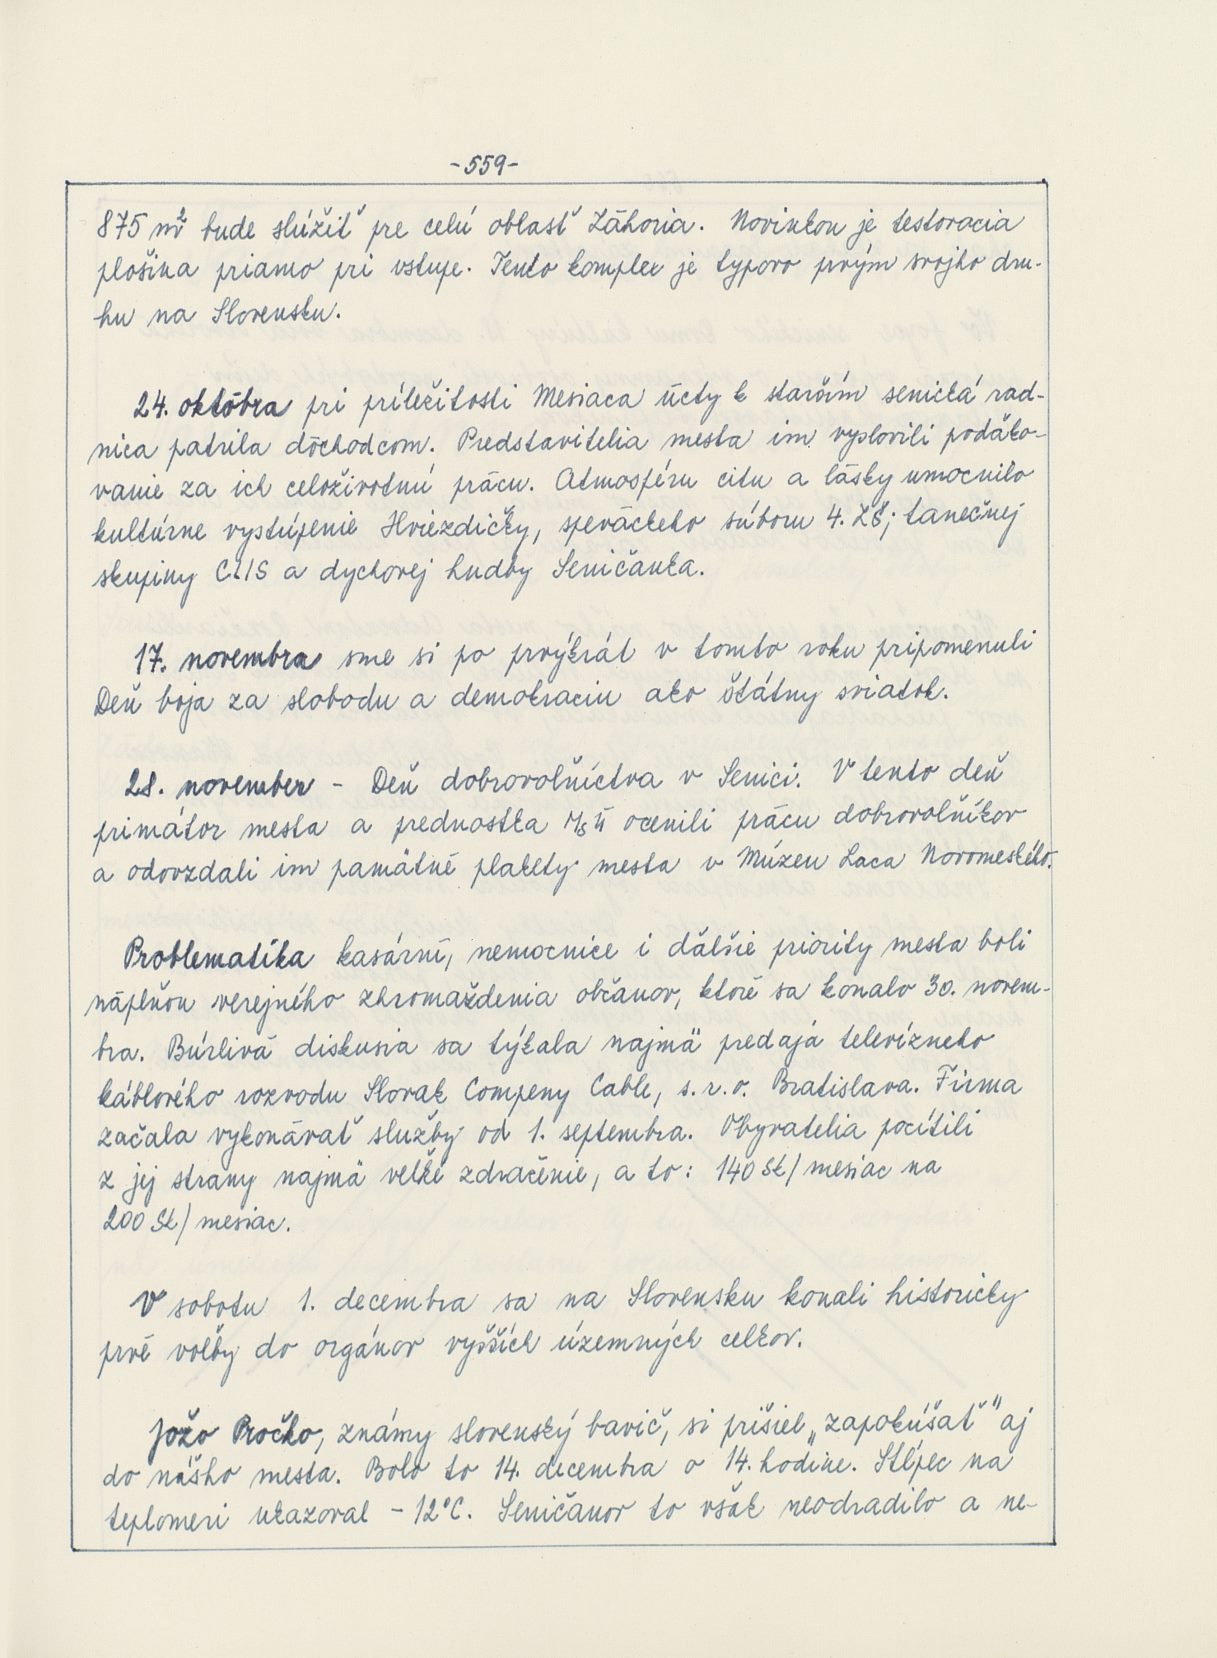 -559-
875 m² bude slúžiť pre celú oblasť Záhoria. Novinkou je testovacia
plošina priamo pri vstupe. Tento komplex je typovo prvým svojho dru-
hu na Slovensku.
24. októbra pri príležitosti Mesiaca úcty k starším senická rad-
nica patrila dôchodcom. Predstavitelia mesta im vyslovili poďako-
vanie za ich celoživotnú prácu. Atmosféru citu a lásky umocnilo
kultúrne vystúpenie Hviezdičky, speváckeho súboru 4. ZŠ, tanečnej
skupiny CLIS a dychovej hudby Seničanka.
17. novembra sme si po prvýkrát v tomto roku pripomenuli
Deň boja za slobodu a demokraciu ako štátny sviatok.
28. november - Deň dobrovoľníctva v Senici. V tento deň
primátor mesta a prednostka MsÚ ocenili prácu dobrovoľníkov
a odovzdali im pamätné plakety mesta v Múzeu Laca Novomeského.
Problematika kasární, nemocnice i ďalšie priority mesta boli
náplňou verejného zhromaždenia občanov, ktoré sa konalo 30. novem-
bra. Búrlivá diskusia sa týkala najmä predaja televízneho
káblového rozvodu Slovak Compeny Cable, s.r.o. Bratislava. Firma
začala vykonávať služby od 1. septembra. Obyvatelia pocítili
z jej strany najmä veľké zdraženie, a to: 140 Sk/mesiac na
200 Sk/mesiac.
V sobotu 1. decembra sa na Slovensku konali historicky
prvé voľby do orgánov vyšších územných celkov.
Jožo Pročko, známy slovenský bavič, si prišiel „zapokúšať" aj
do nášho mesta. Bolo to 14. decembra o 14. hodine. Stĺpec na
teplomeri ukazoval - 12°C. Seničanov to však neodradilo a ne-